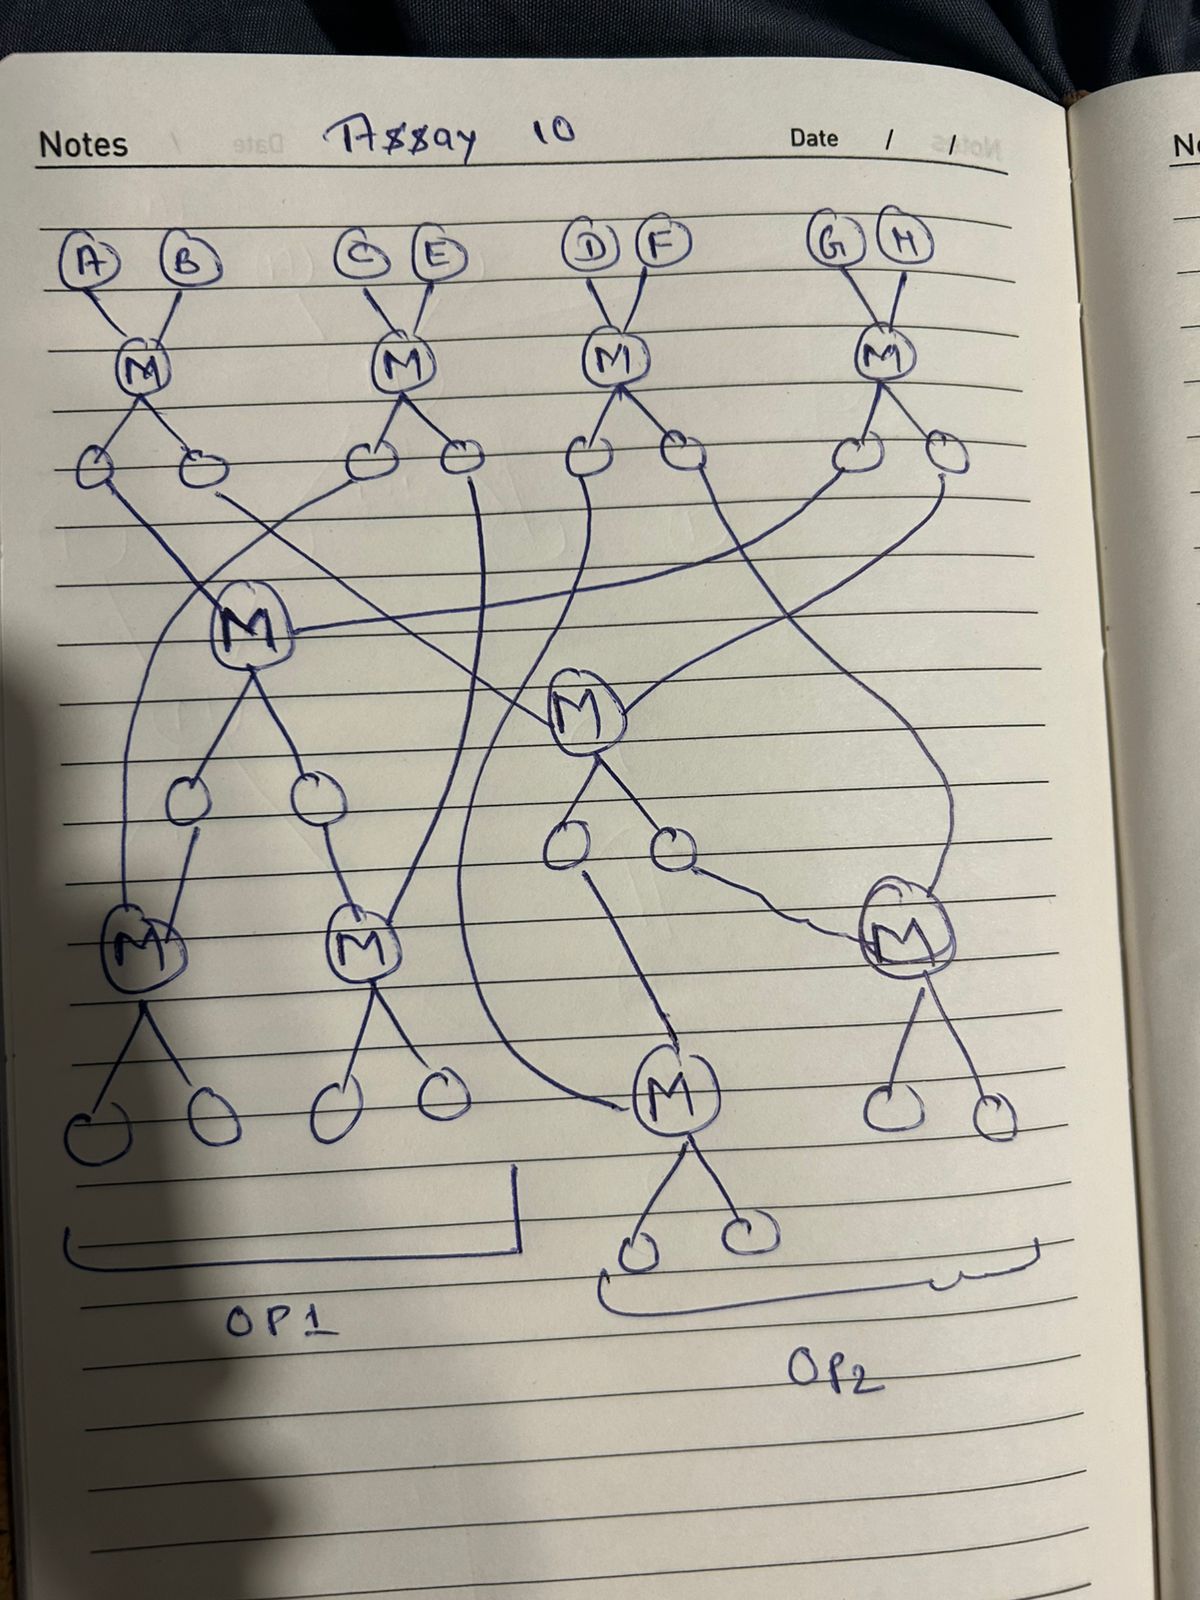 Notes / Assay 10 Date / /
A B C E D F G H
M M M M
M
M
M M M
M
OP1
OP2